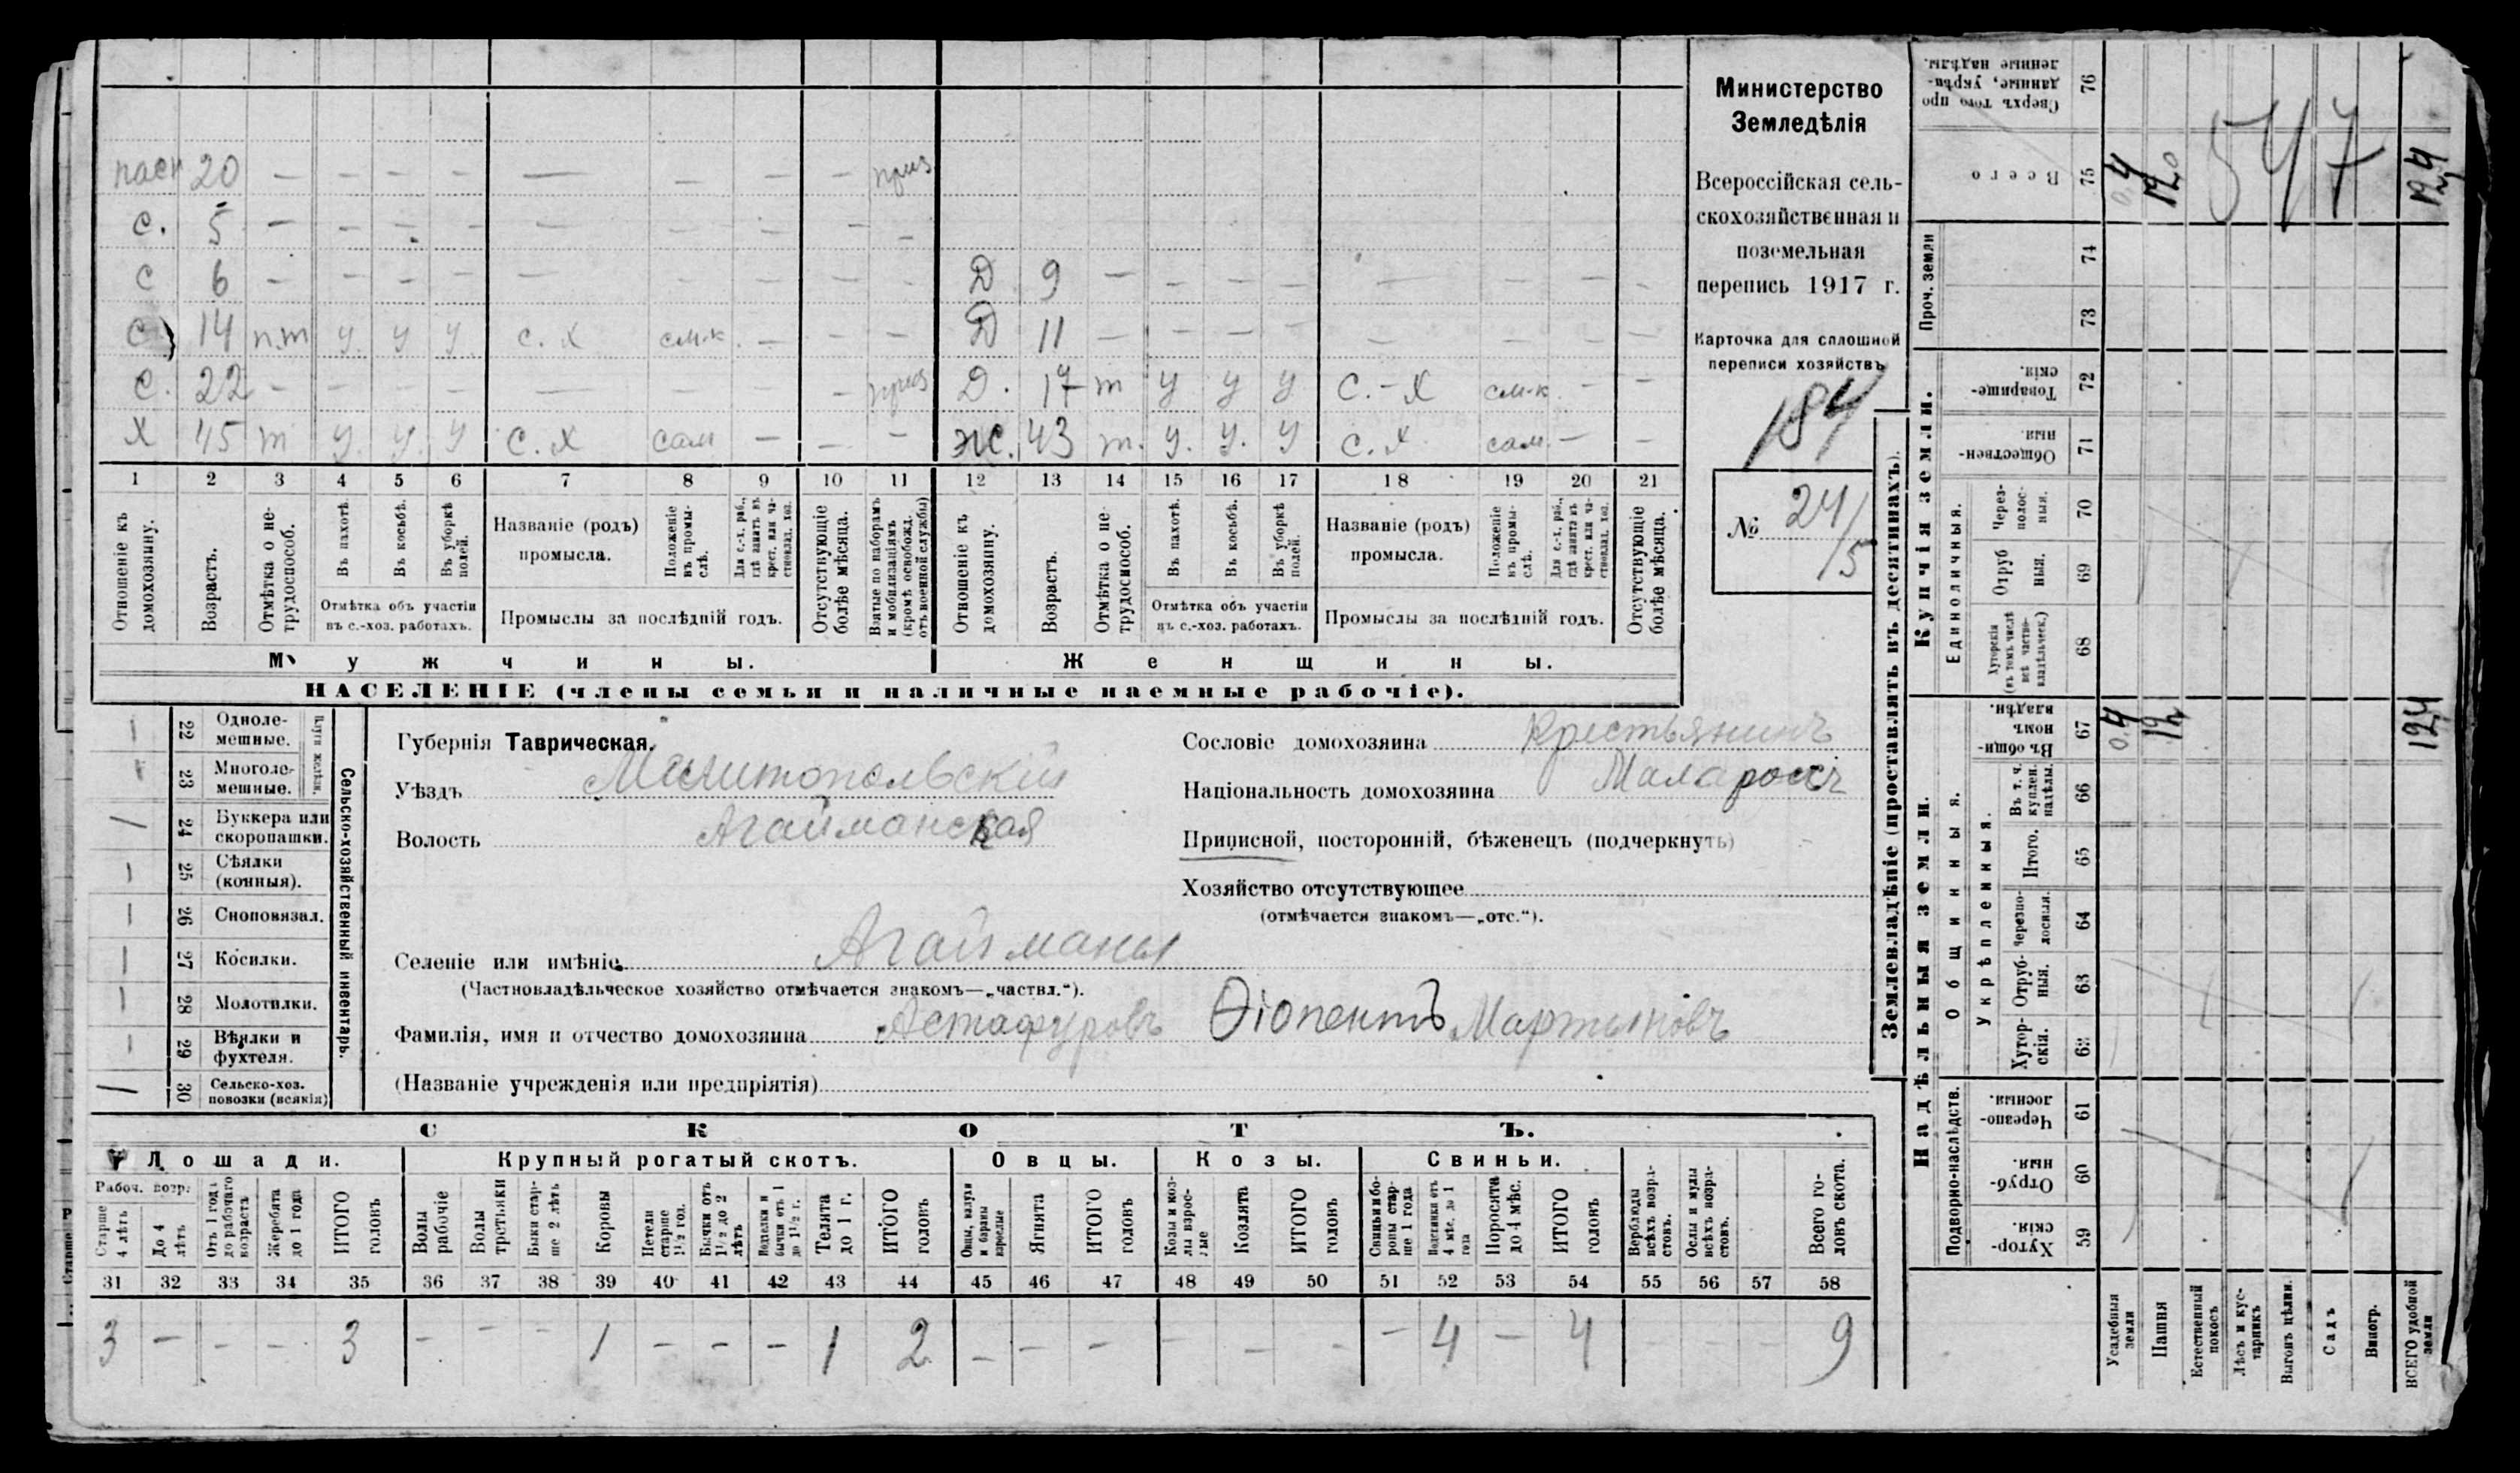 пасн 20 — — — — — — — — приз
с. 5 — — — — — — — — —
с 6 — — — — — — — — — Д 9 — — — — — — — —
с 14 п.т у. у у. с. х см-к. — — — Д 11 — — — — — — — —
с. 22 — — — — — — — — приз Д. 17 т у у у с. - х см-к. — —
х 45 т у. у. у с. х сам — — — ж. 43 т. у. у. у с. х. сам. — —
1 2 3 4 5 6 7 8 9 10 11 12 13 14 15 16 17 18 19 20 21
Отношеніе къ домохозяину.
Возрастъ.
Отмѣтка о нетрудоспособ.
Въ пахотѣ.
Въ косьбѣ.
Въ уборкѣ полей.
Отмѣтка объ участіи
въ с.-хоз. работахъ.
Названіе (родъ)
промысла.
Положеніе въ промыслѣ.
Для с.-х. раб., гдѣ занятъ въ крест. или частновлад. хоз.
Промыслы за послѣдній годъ.
Отсутствующіе болѣе мѣсяца.
Взятые по наборамъ и мобилизаціямъ (кромѣ освобожд. отъ военной службы)
Отношеніе къ домохозяину.
Возрастъ.
Отмѣтка о нетрудоспособ.
Въ пахотѣ.
Въ косьбѣ.
Въ уборкѣ полей.
Отмѣтка объ участіи
въ с.-хоз. работахъ.
Названіе (родъ)
промысла.
Положеніе въ промыслѣ.
Для с.-х. раб., гдѣ занята въ крест. или частновлад. хоз.
Промыслы за послѣдній годъ.
Отсутствующіе болѣе мѣсяца.
Мужчины.
Женщины.
НАСЕЛЕНІЕ (члены семьи и наличные наемные рабочіе).
Министерство
Земледѣлія
Всероссійская сель-
скохозяйственная и
поземельная
перепись 1917 г.
Карточка для сплошной
переписи хозяйствъ
184
№ 24/5
22 Одноле-
мешные.
23 Многоле-
мешные.
Плуги желѣзн.
24 Буккера или
скоропашки.
25 Сѣялки
(конныя).
26 Сноповязал.
27 Косилки.
28 Молотилки.
29 Вѣялки и
фухтеля.
30 Сельско-хоз.
повозки (всякія)
Сельско-хозяйственный инвентарь.
Губернія Таврическая.
Уѣздъ Мелитопольскій
Волость Агайманская
Селеніе или имѣніе Агайманы
(Частновладѣльческое хозяйство отмѣчается знакомъ—„частвл.“).
Фамилія, имя и отчество домохозяина Астафуровъ Ѳіопентъ Мартыновъ
(Названіе учрежденія или предпріятія)
Сословіе домохозяина Крестьянинъ
Національность домохозяина Малароссъ
Приписной, посторонній, бѣженецъ (подчеркнуть)
Хозяйство отсутствующее
(отмѣчается знакомъ—„отс.“).
СКОТЪ.
Лошади. Крупный рогатый скотъ. Овцы. Козы. Свиньи.
Рабоч. возр.
Старше 4 лѣтъ
До 4 лѣтъ
Отъ 1 года до рабочаго возраста
Жеребята до 1 года
ИТОГО головъ
Волы рабочіе
Волы третьяки
Быки старше 2 лѣтъ
Коровы
Нетели старше 1½ год.
Бычки отъ 1½ до 2 лѣтъ
Водтелки и бычки отъ 1 до 1½ г.
Телята до 1 г.
ИТОГО головъ
Овцы, валухи и бараны взрослые
Ягнята
ИТОГО головъ
Козы и козлы взрослые
Козлята
ИТОГО головъ
Свиньи и боровы старше 1 года
Подсвинки отъ 4 мѣс. до 1 года
Поросята до 4 мѣс.
ИТОГО головъ
Верблюды всѣхъ возрастовъ.
Ослы и мулы всѣхъ возрастовъ.
Всего головъ скота.
31 32 33 34 35 36 37 38 39 40 41 42 43 44 45 46 47 48 49 50 51 52 53 54 55 56 57 58
3 — — — 3 — — — 1 — — — 1 2 — — — — — — — 4 — 4 — — 9
Землевладѣніе (проставлять въ десятинахъ).
Надѣльныя земли.
Купчія земли.
Проч. земли
Сверхъ того проданные, укрѣпленные надѣлы. 76
Всего 75 0.4 12,0 12,4
547
74
73
Товарищескія. 72
Общественныя. 71
Единоличныя.
Черезполосныя. 70
Отрубныя. 69
Хуторскія (въ томъ числѣ всѣ частновладѣльческ.) 68
Общинныя.
Въ общинномъ владѣн. 67 0.4 12, 12,4
Укрѣпленныя.
Въ т. ч. куплен. надѣлы. 66
Итого. 65
Черезполосныя. 64
Отрубныя. 63
Хуторскія. 62
Подворно-наслѣдств.
Черезполосныя. 61
Отрубныя. 60
Хуторскія. 59
Усадебныя земли
Пашня
Естественный покосъ
Лѣсъ и кустарникъ
Выгонъ цѣлин.
Садъ
Виногр.
ВСЕГО удобной земли